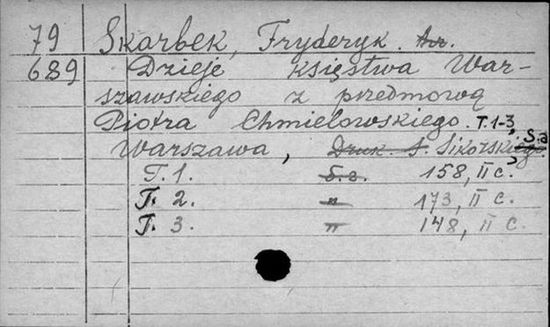 79 Skarbek, Fryderyk. hr.
689 Dzieje księstwa War-
szawskiego z przedmową
Piotra Chmielowskiego. T. 1-3,
Warszawa, Druk. S. Sikorskiego. S.a
T. 1. S.a. 158, II c.
T. 2. " 173, II c.
T. 3. " 148, II c.